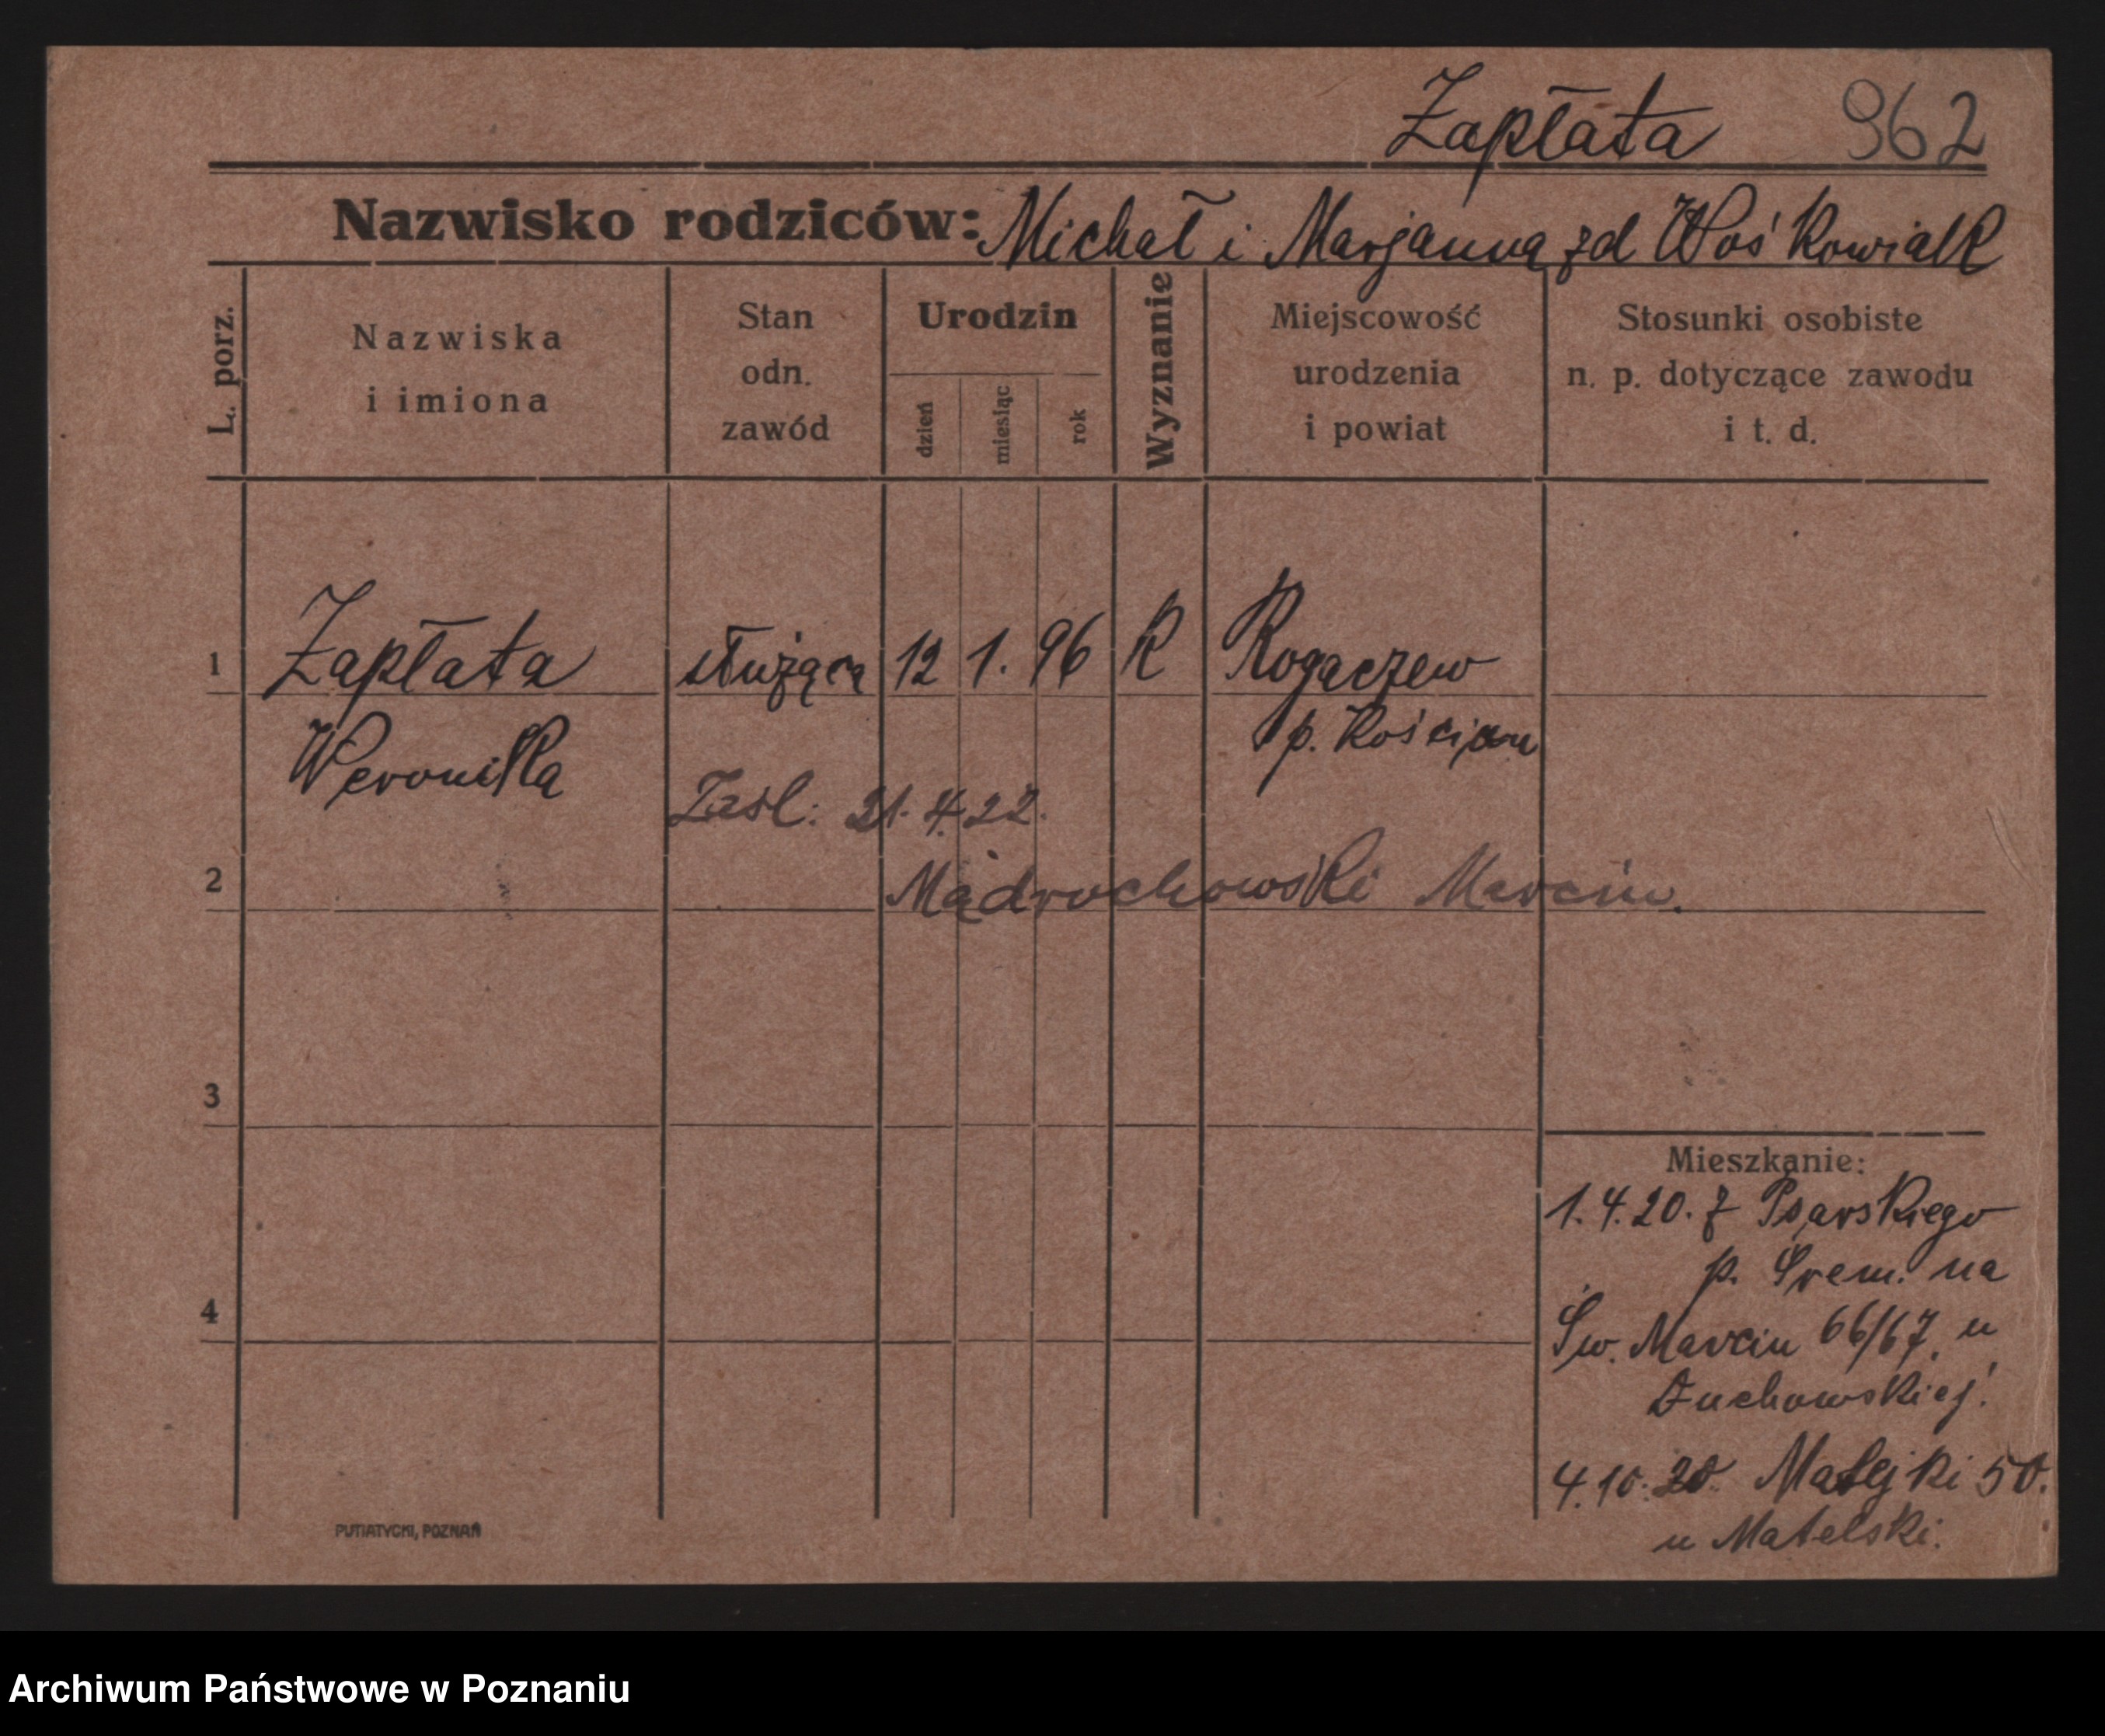 Zapłata 962
Nazwisko rodziców: Michał i Marjanna zd Woś Kowiak
L. porz.
Nazwiska
i imiona
Stan
odn.
zawód
Urodzin
dzień
miesiąc
rok
Wyznanie
Miejscowość
urodzenia
i powiat
Stosunki osobiste
n. p. dotyczące zawodu
i t. d.
1 Zapłata służąca 12 1. 96 K Rogaczew
Weronika p. Kościan
Zaśl: 21. 4. 22.
2 Mądrochowski Marcin.
3
Mieszkanie:
1. 4. 20. z Psarskiego
p. Śrem. na
4
Św. Marcin 66/67. u
Żuchowskiej.
4. 10. 20. Matejki 50.
u Matelski.
PUTIATYCKI, POZNAŃ
Archiwum Państwowe w Poznaniu